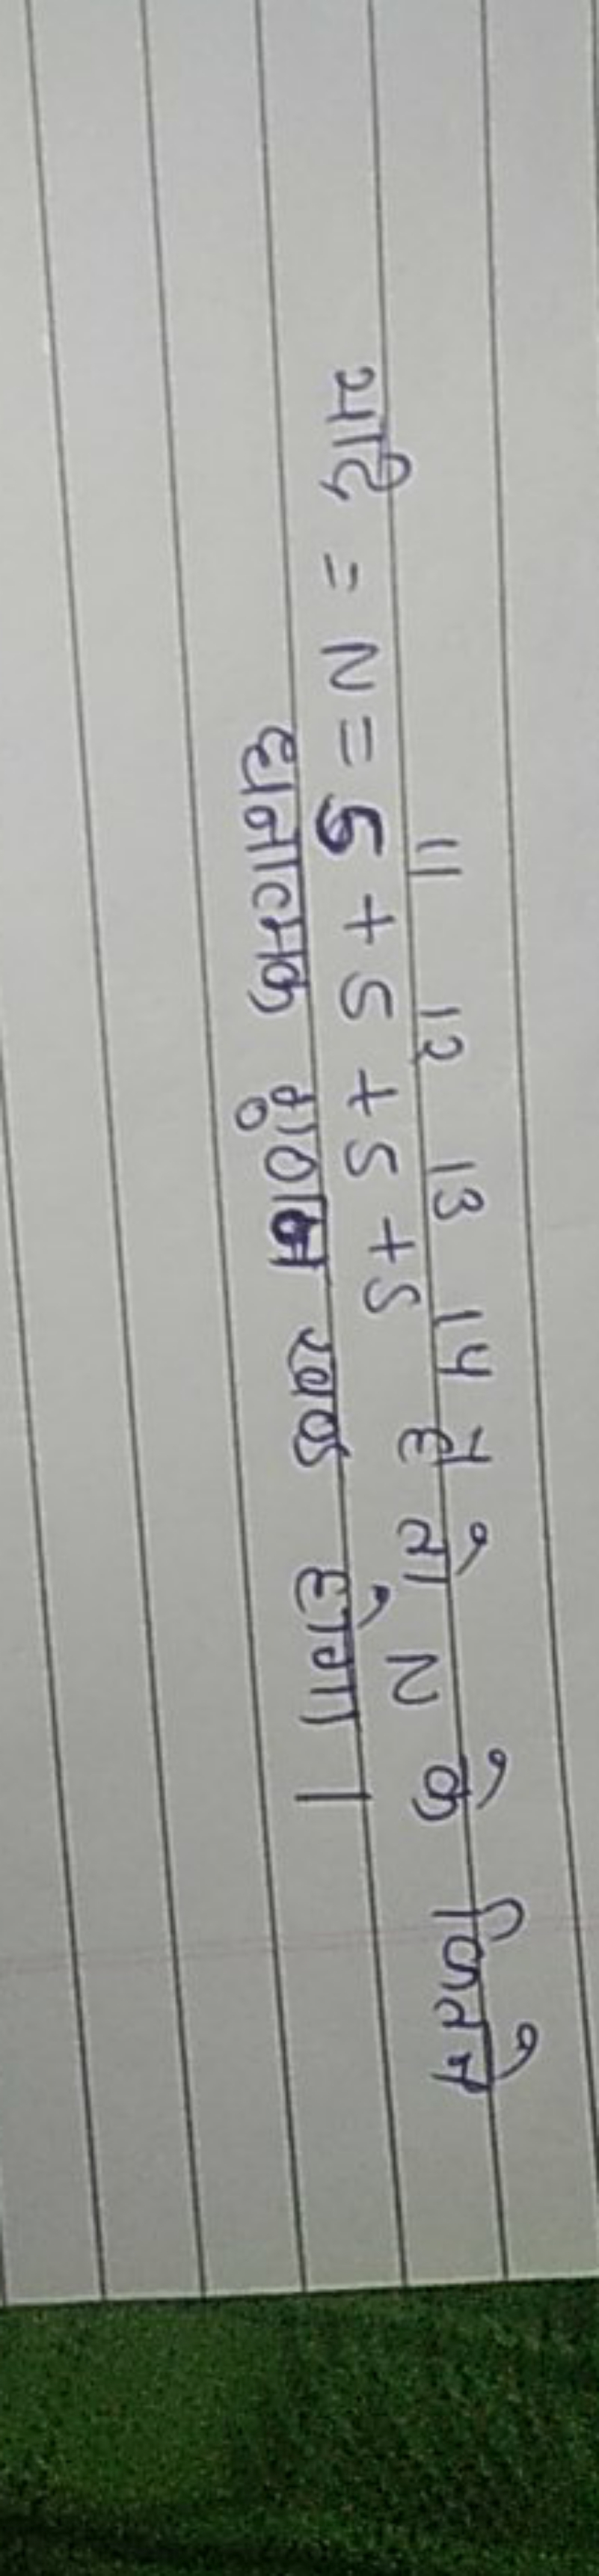 यदि = N = 5¹¹ + 5¹² + 5¹³ + 5¹⁴ है तो N के कितने
धनात्मक गुणन खंड होगा।